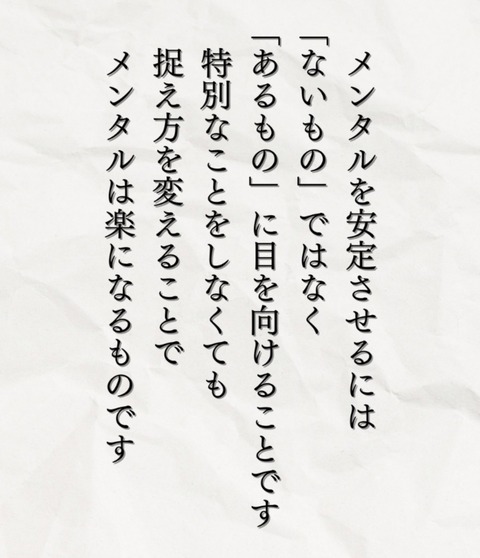 メンタルを安定させるには
「ないもの」ではなく
「あるもの」に目を向けることです
特別なことをしなくても
捉え方を変えることで
メンタルは楽になるものです